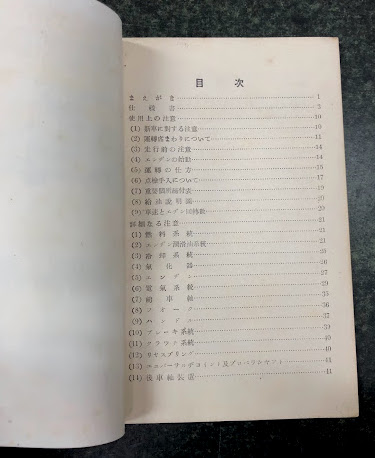 目次
まえがき 1
仕様書 3
使用上の注意 10
(1) 新車に對する注意 10
(2) 運轉席まわりについて 11
(3) 走行前の注意 14
(4) エンヂンの始動 14
(5) 運轉の仕方 15
(6) 点検手入について 17
(7) 重要箇所締付表 18
(8) 給油説明圖 19
(9) 車速と 20
詳細なる注意 21
(1) 燃料系統 21
(2) エンヂン潤滑油系統 21
(3) 冷却系統 23
(4) 氣化器 25
(5) エンヂン 27
(6) 電氣系統 29
(7) 前車軸 35
(8) 37
(9) ハンドル 37
(10) ブレーキ系統 39
(11) クラッチ系統 40
(12) リヤスプリング 40
(13) ユニバーサルヂョイント及プロペラシャフト 41
(14) 後車軸装置 41